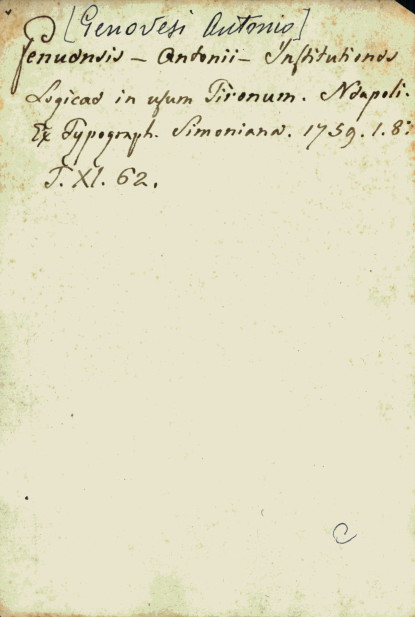 [Genovesi Antonio]
Genuensis - Antonii - Institutiones
Logicae in usum Tironum. Neapoli.
Ex Typograph. Simoniana. 1759. 1. 8:
T. XI. 62.
C